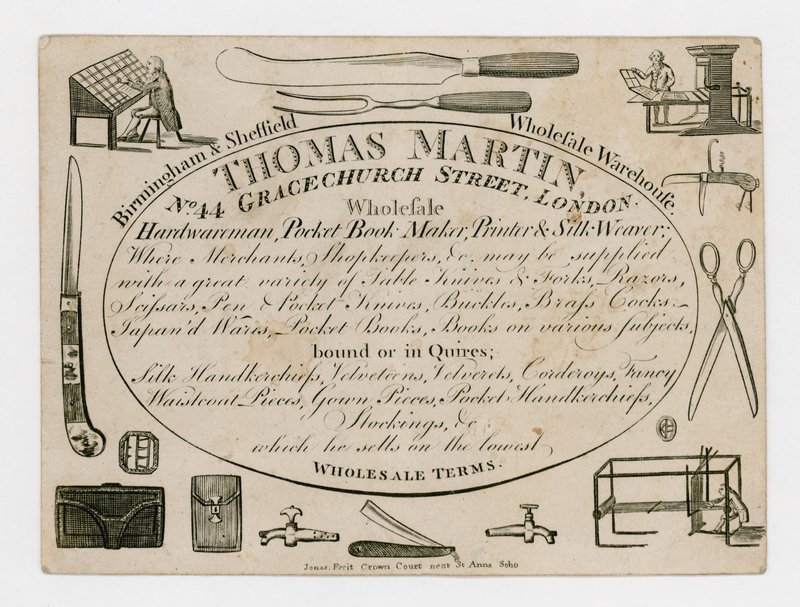 Birmingham & Sheffield Wholesale Warehouse.
THOMAS MARTIN,
No. 44 GRACECHURCH STREET, LONDON.
Wholesale
Hardwareman, Pocket Book Maker, Printer & Silk Weaver;
Where Merchants, Shopkeepers, &c. may be supplied
with a great variety of Table Knives & Forks, Razors,
Scissars, Pen & Pocket Knives, Buckles, Brass Cocks,
Japan'd Wares, Pocket Books, Books on various subjects,
bound or in Quires;
Silk Handkerchiefs, Velveteens, Velverets, Corderoys, Fancy
Waistcoat Pieces, Gown Pieces, Pocket Handkerchiefs,
Stockings, &c.
which he sells on the lowest
WHOLESALE TERMS.
Jones. Fecit Crown Court near St Anns Soho